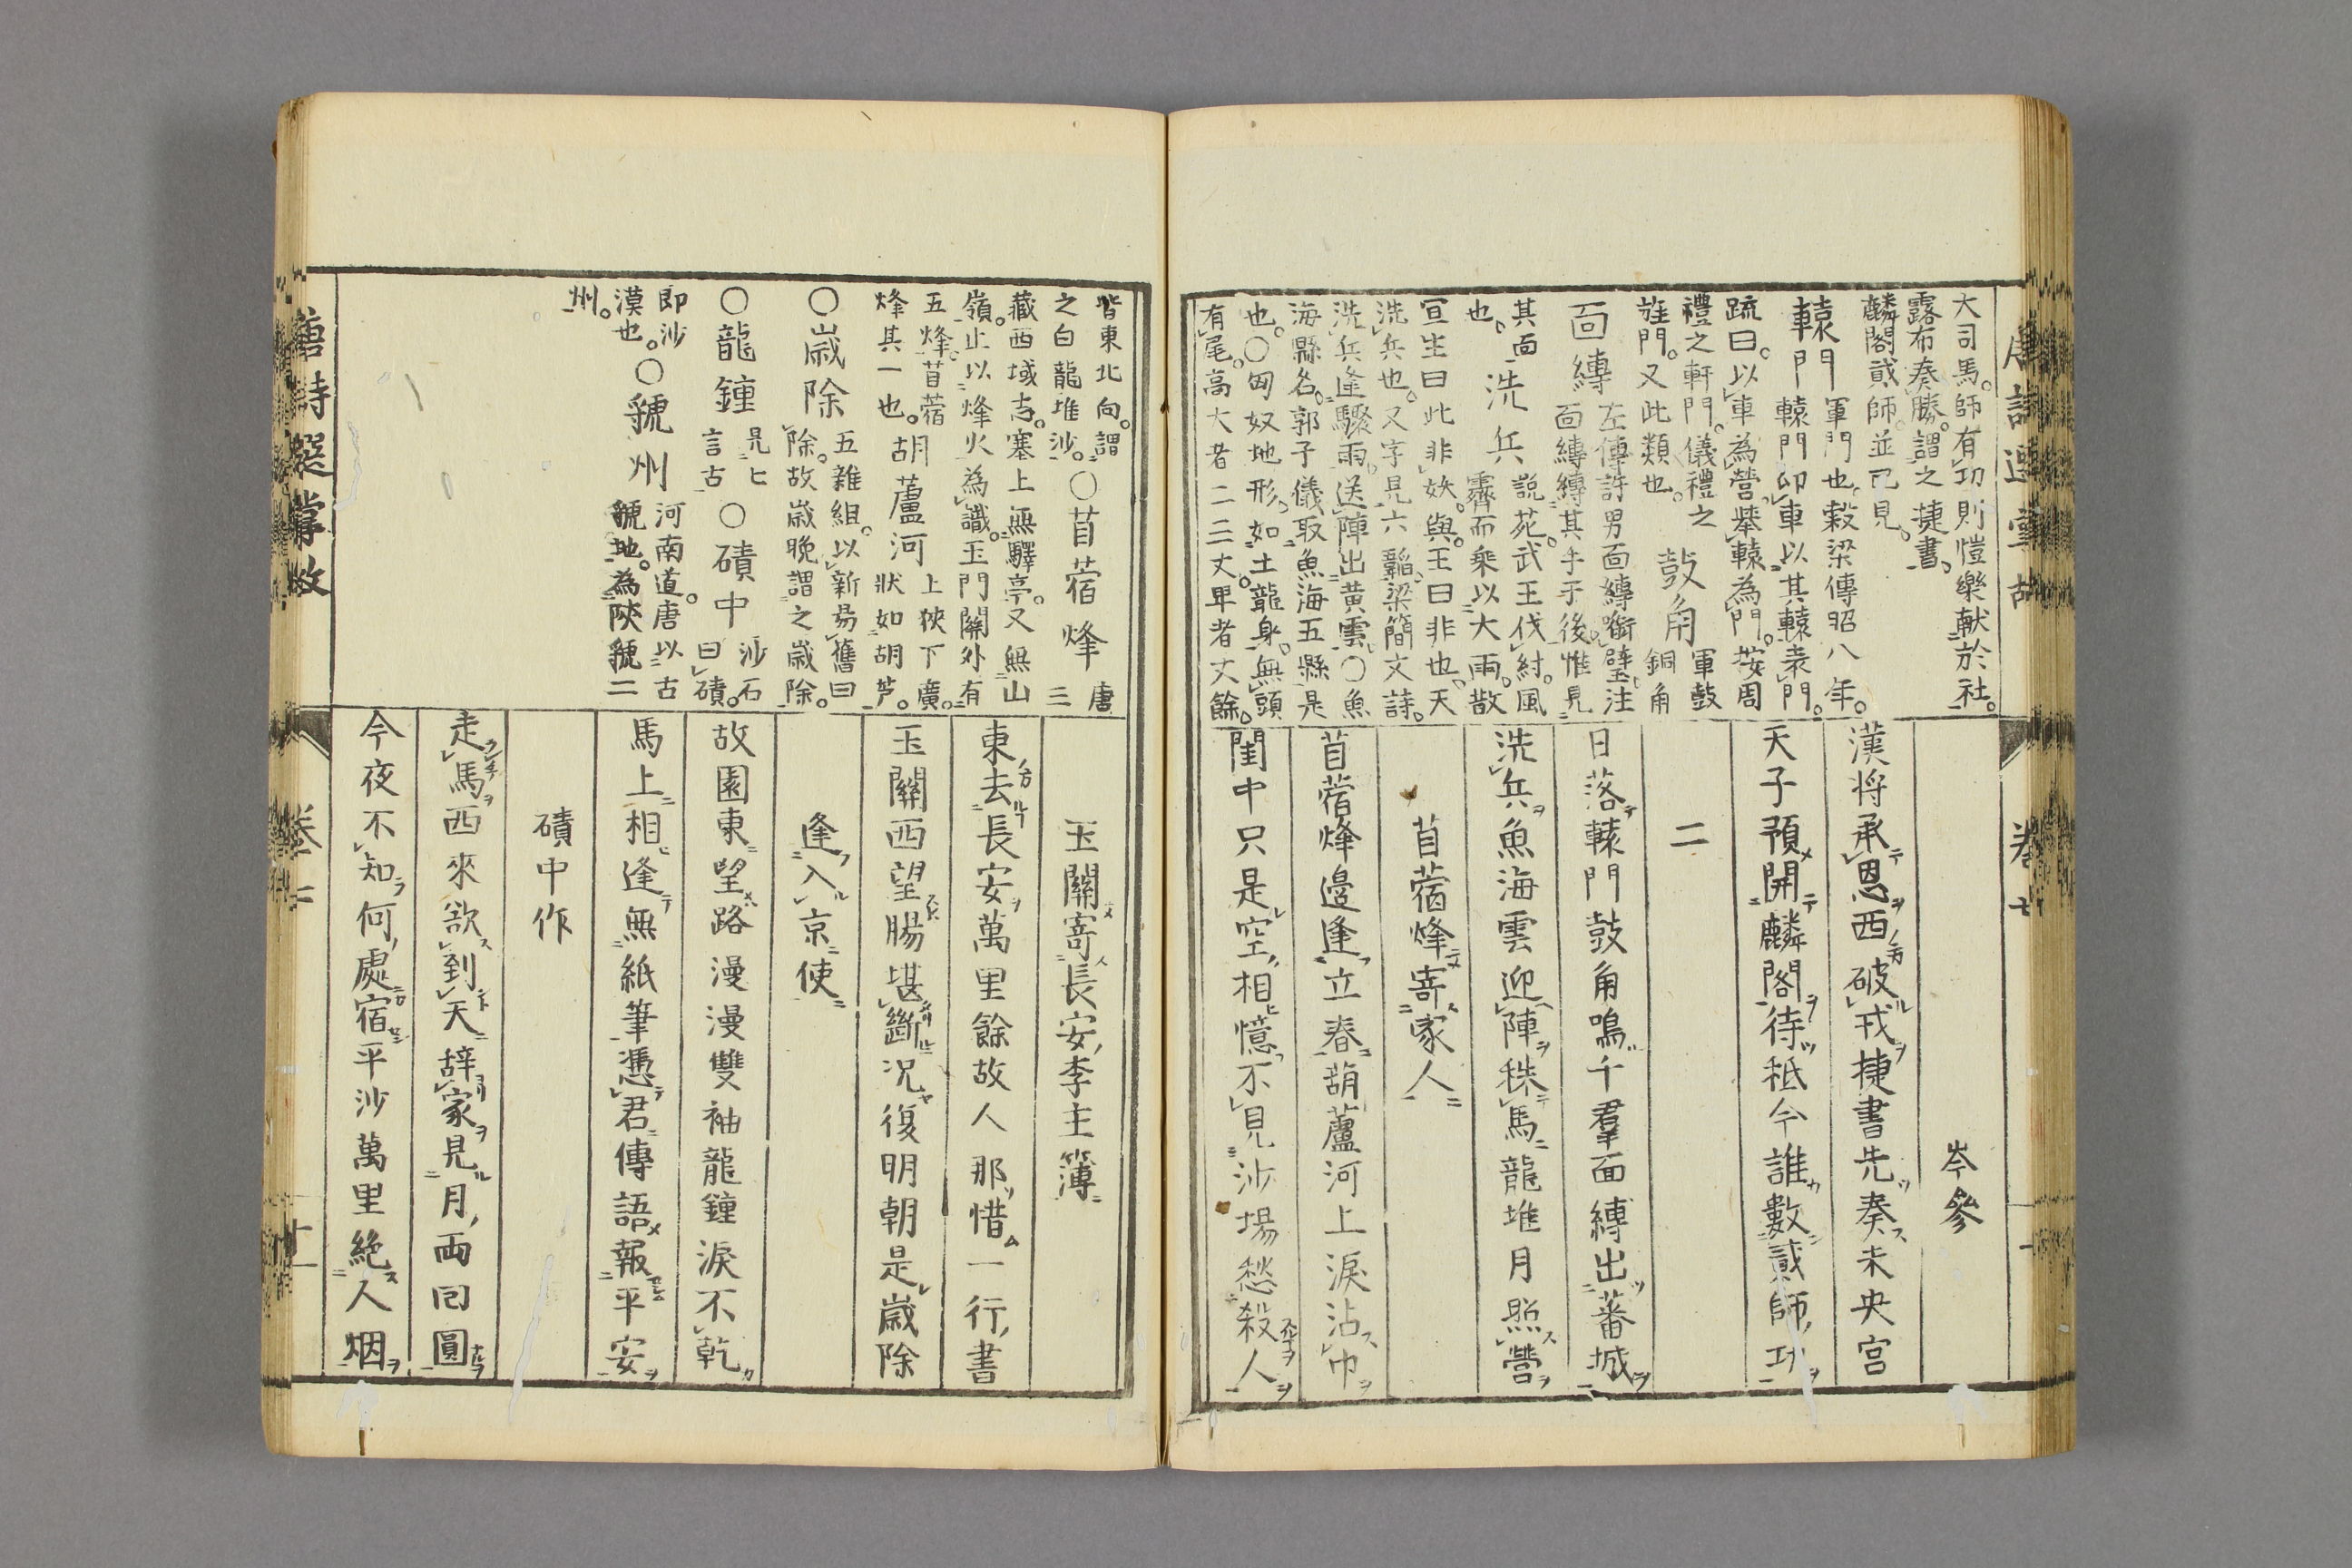 大司馬。師有功則愷樂献於社。
露布奏勝。謂之捷書。
麟閣貳師並已見。
轅門 軍門也。穀梁傳昭八年。
轅門卬車以其轅表門。
疏曰。以車為營。舉轅為門。按周
禮之軒門。儀禮之
旌門。又此類也。 鼓角 軍鼓
銅角
面縛 左傳許男面縛銜璧。注
面縛縛其手于後。惟見
其面
也。 洗兵 説苑。武王伐紂。風
霽而乘以大雨。散
宜生曰此非妖與。王曰非也。天
洗兵也。又字見六韜。梁簡文詩。
洗兵逢驟雨。送陣出黄雲。〇魚
海縣名。郭子儀取魚海五縣是
也。〇匈奴地形。如土龍身。無頭
有尾。高大者二三丈。卑者丈餘。
岑參
漢将承恩西破戎捷書先奏未央宮
天子預開麟閣待秖今誰數貳師功
二
日落轅門鼓角鳴千羣面縛出蕃城
洗兵魚海雲迎陣秣馬龍堆月照營
苜蓿烽寄家人
苜蓿烽邊逢立春葫蘆河上淚沾巾
閨中只是空相憶不見沙場愁殺人
皆東北向。謂
之白龍堆沙。 〇苜蓿烽 唐
三
藏西域志。塞上無驛亭。又無山
嶺。止以烽火為識。玉門關外有
五烽。苜蓿
烽其一也。 胡蘆河 上狹下廣。
狀如胡芦。
〇歳除 五雜組。以新易舊曰
除。故歳晩謂之歳除。
〇龍鍾 見七
言古 〇磧中 沙石
曰磧。
即沙
漠也。 〇虢州 河南道。唐以古
虢地。為陝虢二
州。
玉關寄長安李主簿
東去長安萬里餘故人那惜一行書
玉關西望腸堪斷況復明朝是歳除
逢入京使
故園東望路漫漫雙袖龍鍾淚不乾
馬上相逢無紙筆憑君傳語報平安
磧中作
走馬西來欲到天辞家見月兩回圓
今夜不知何處宿平沙萬里絶人烟
唐詩選掌故
卷七
十一